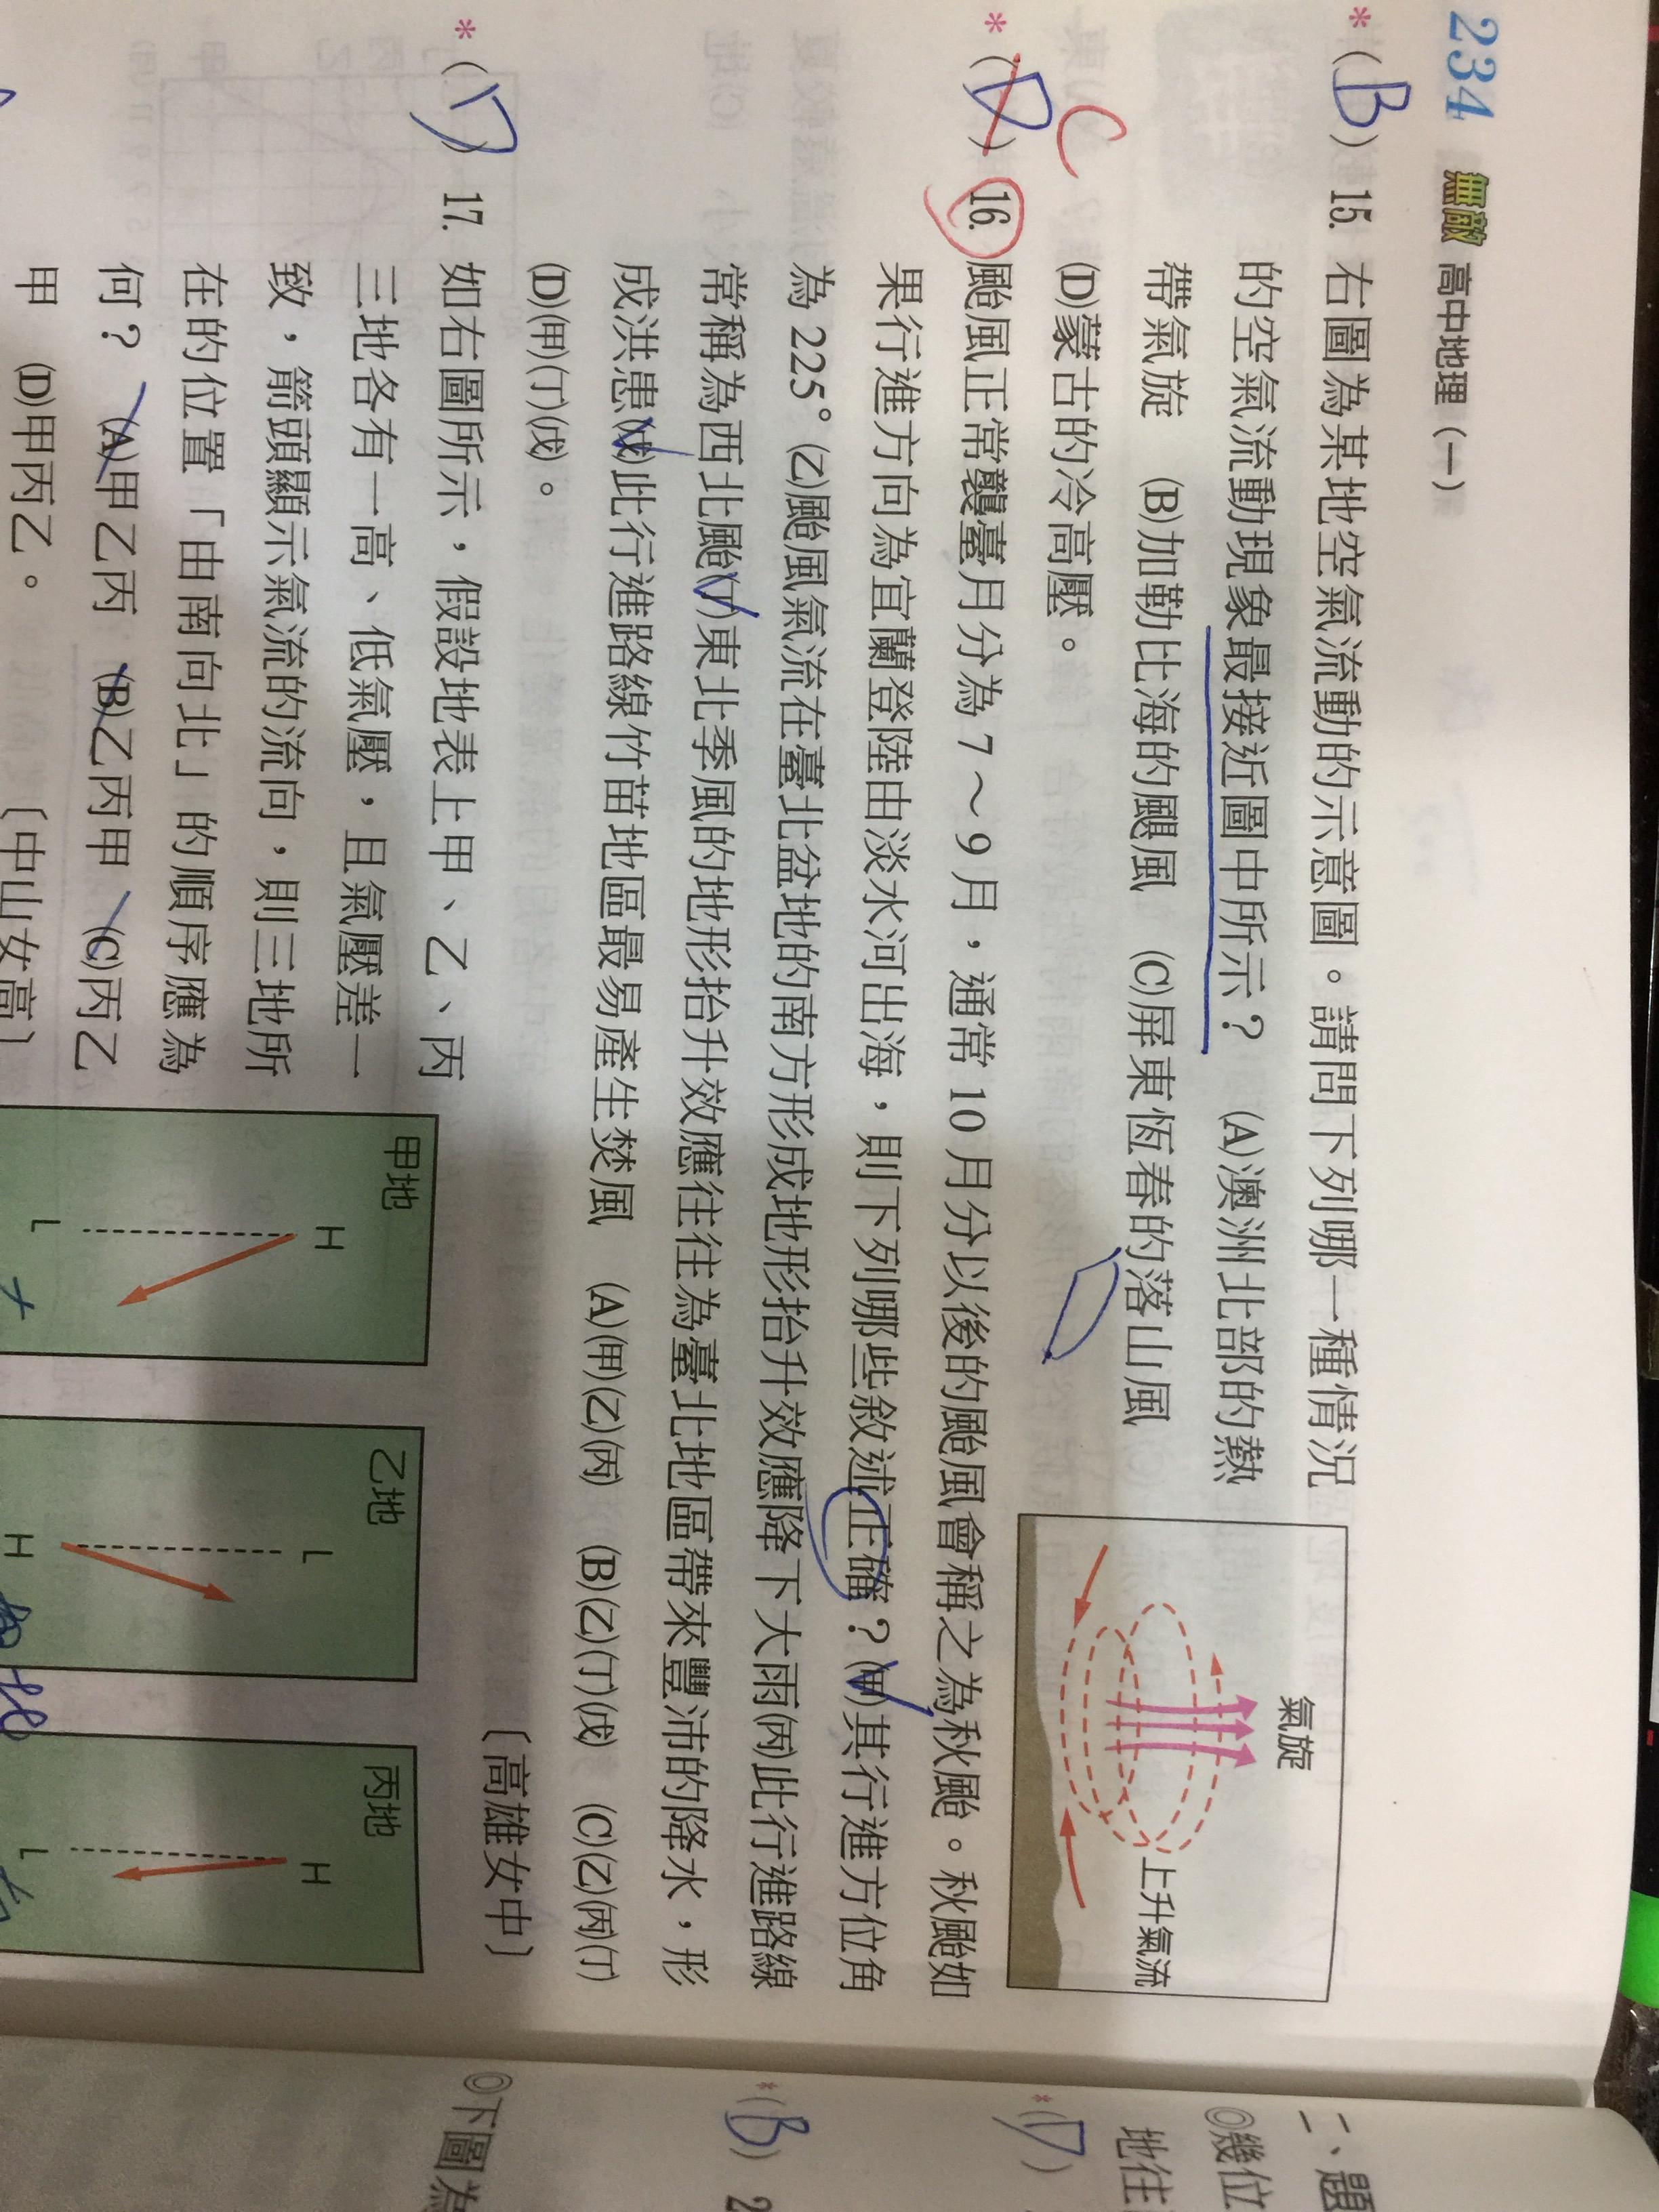 234 無敵 高中地理（一）
*（B）15. 右圖為某地空氣流動的示意圖。請問下列哪一種情況
的空氣流動現象最接近圖中所示？ (A)澳洲北部的熱
帶氣旋 (B)加勒比海的颶風 (C)屏東恆春的落山風
(D)蒙古的冷高壓。
氣旋
上升氣流
C
*（D）16. 颱風正常襲臺月分為 7～9 月，通常 10 月分以後的颱風會稱之為秋颱。秋颱如
果行進方向為宜蘭登陸由淡水河出海，則下列哪些敘述正確？(甲)其行進方位角
為 225° (乙)颱風氣流在臺北盆地的南方形成地形抬升效應降下大雨(丙)此行進路線
常稱為西北颱(丁)東北季風的地形抬升效應往往為臺北地區帶來豐沛的降水，形
成洪患(戊)此行進路線竹苗地區最易產生焚風 (A)(甲)(乙)(丙) (B)(乙)(丁)(戊) (C)(乙)(丙)(丁)
(D)(甲)(丁)(戊)。
〔高雄女中〕
*（D）17. 如右圖所示，假設地表上甲、乙、丙
三地各有一高、低氣壓，且氣壓差一
致，箭頭顯示氣流的流向，則三地所
在的位置「由南向北」的順序應為
何？ (A)甲乙丙 (B)乙丙甲 (C)丙乙
甲 (D)甲丙乙。 〔中山女高〕
甲地
H
L
乙地
L
H
丙地
H
L
二、題
◎幾位
*（D）
地住
*（B）2
◎下圖為